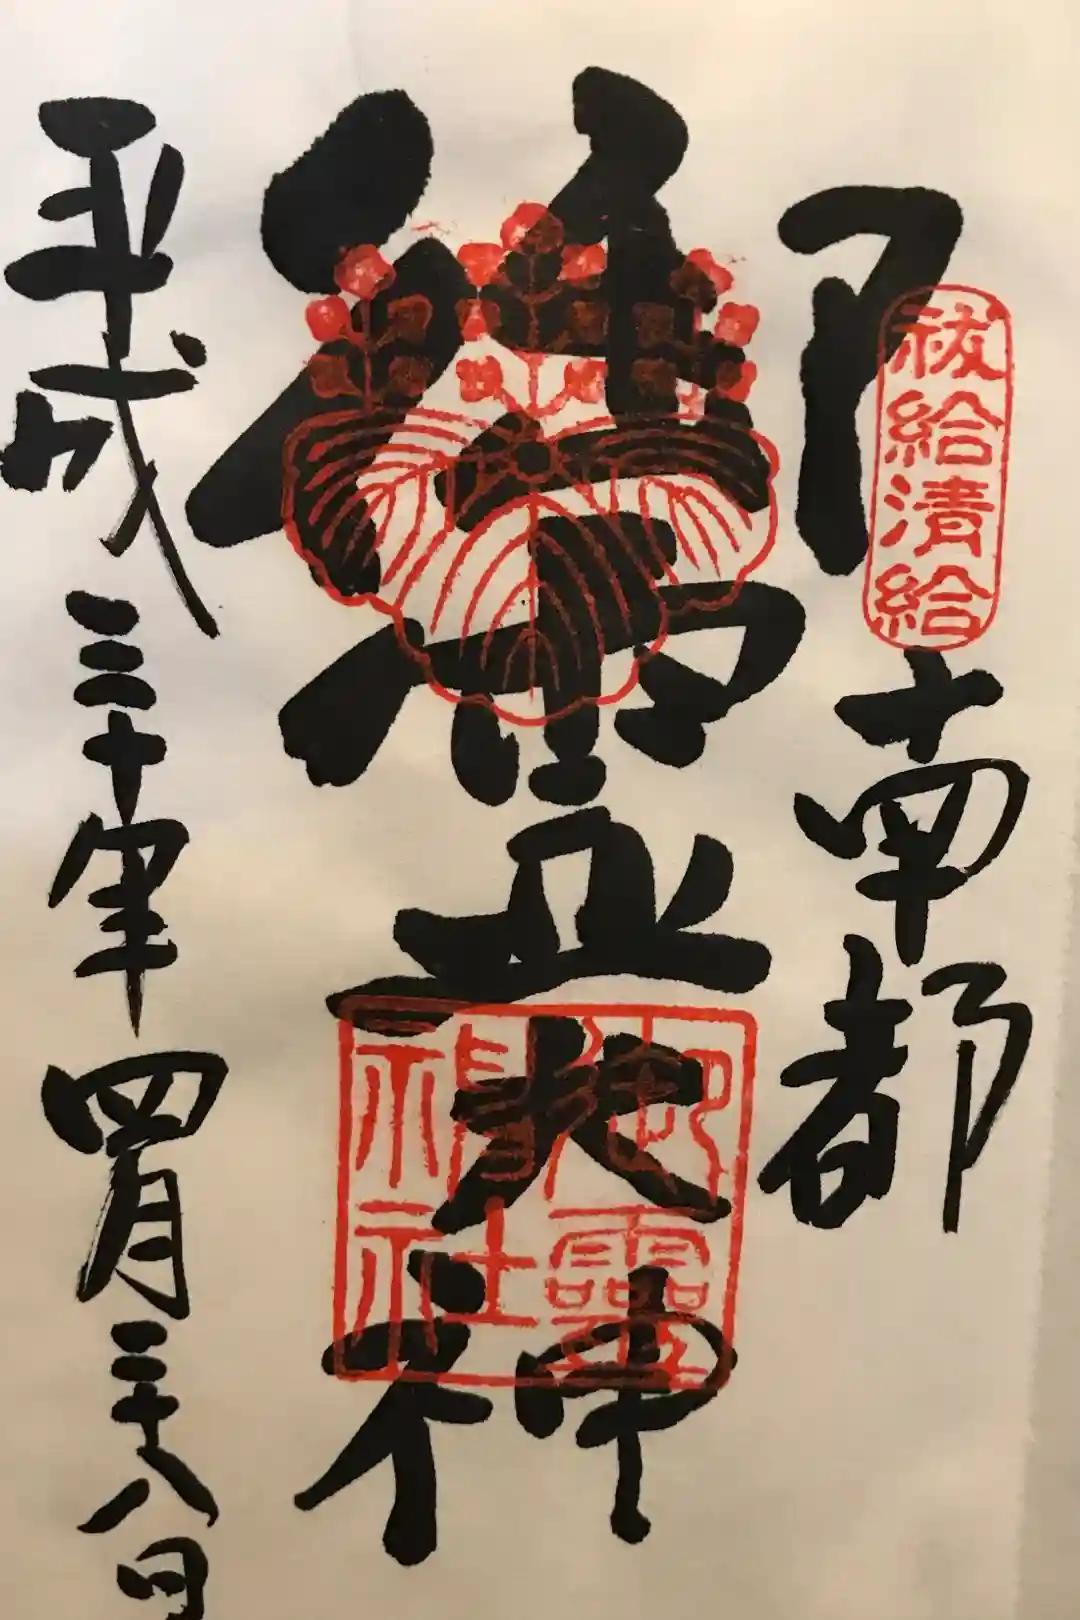 祓給清給
南都
御靈大神
御靈神社
平成三十年四月二十八日